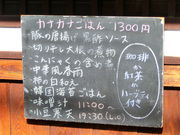 カナカナごはん 1300円
豚の唐揚げ 黒酢ソース
切り干し大根の煮物
こんにゃくの含め煮
中華風春雨
柿の白和え
韓国海苔ごはん
味噌汁 11:00〜
小豆寒天 19:30(L.O)
珈琲
か
紅茶
の
ハーフサイズ
付き